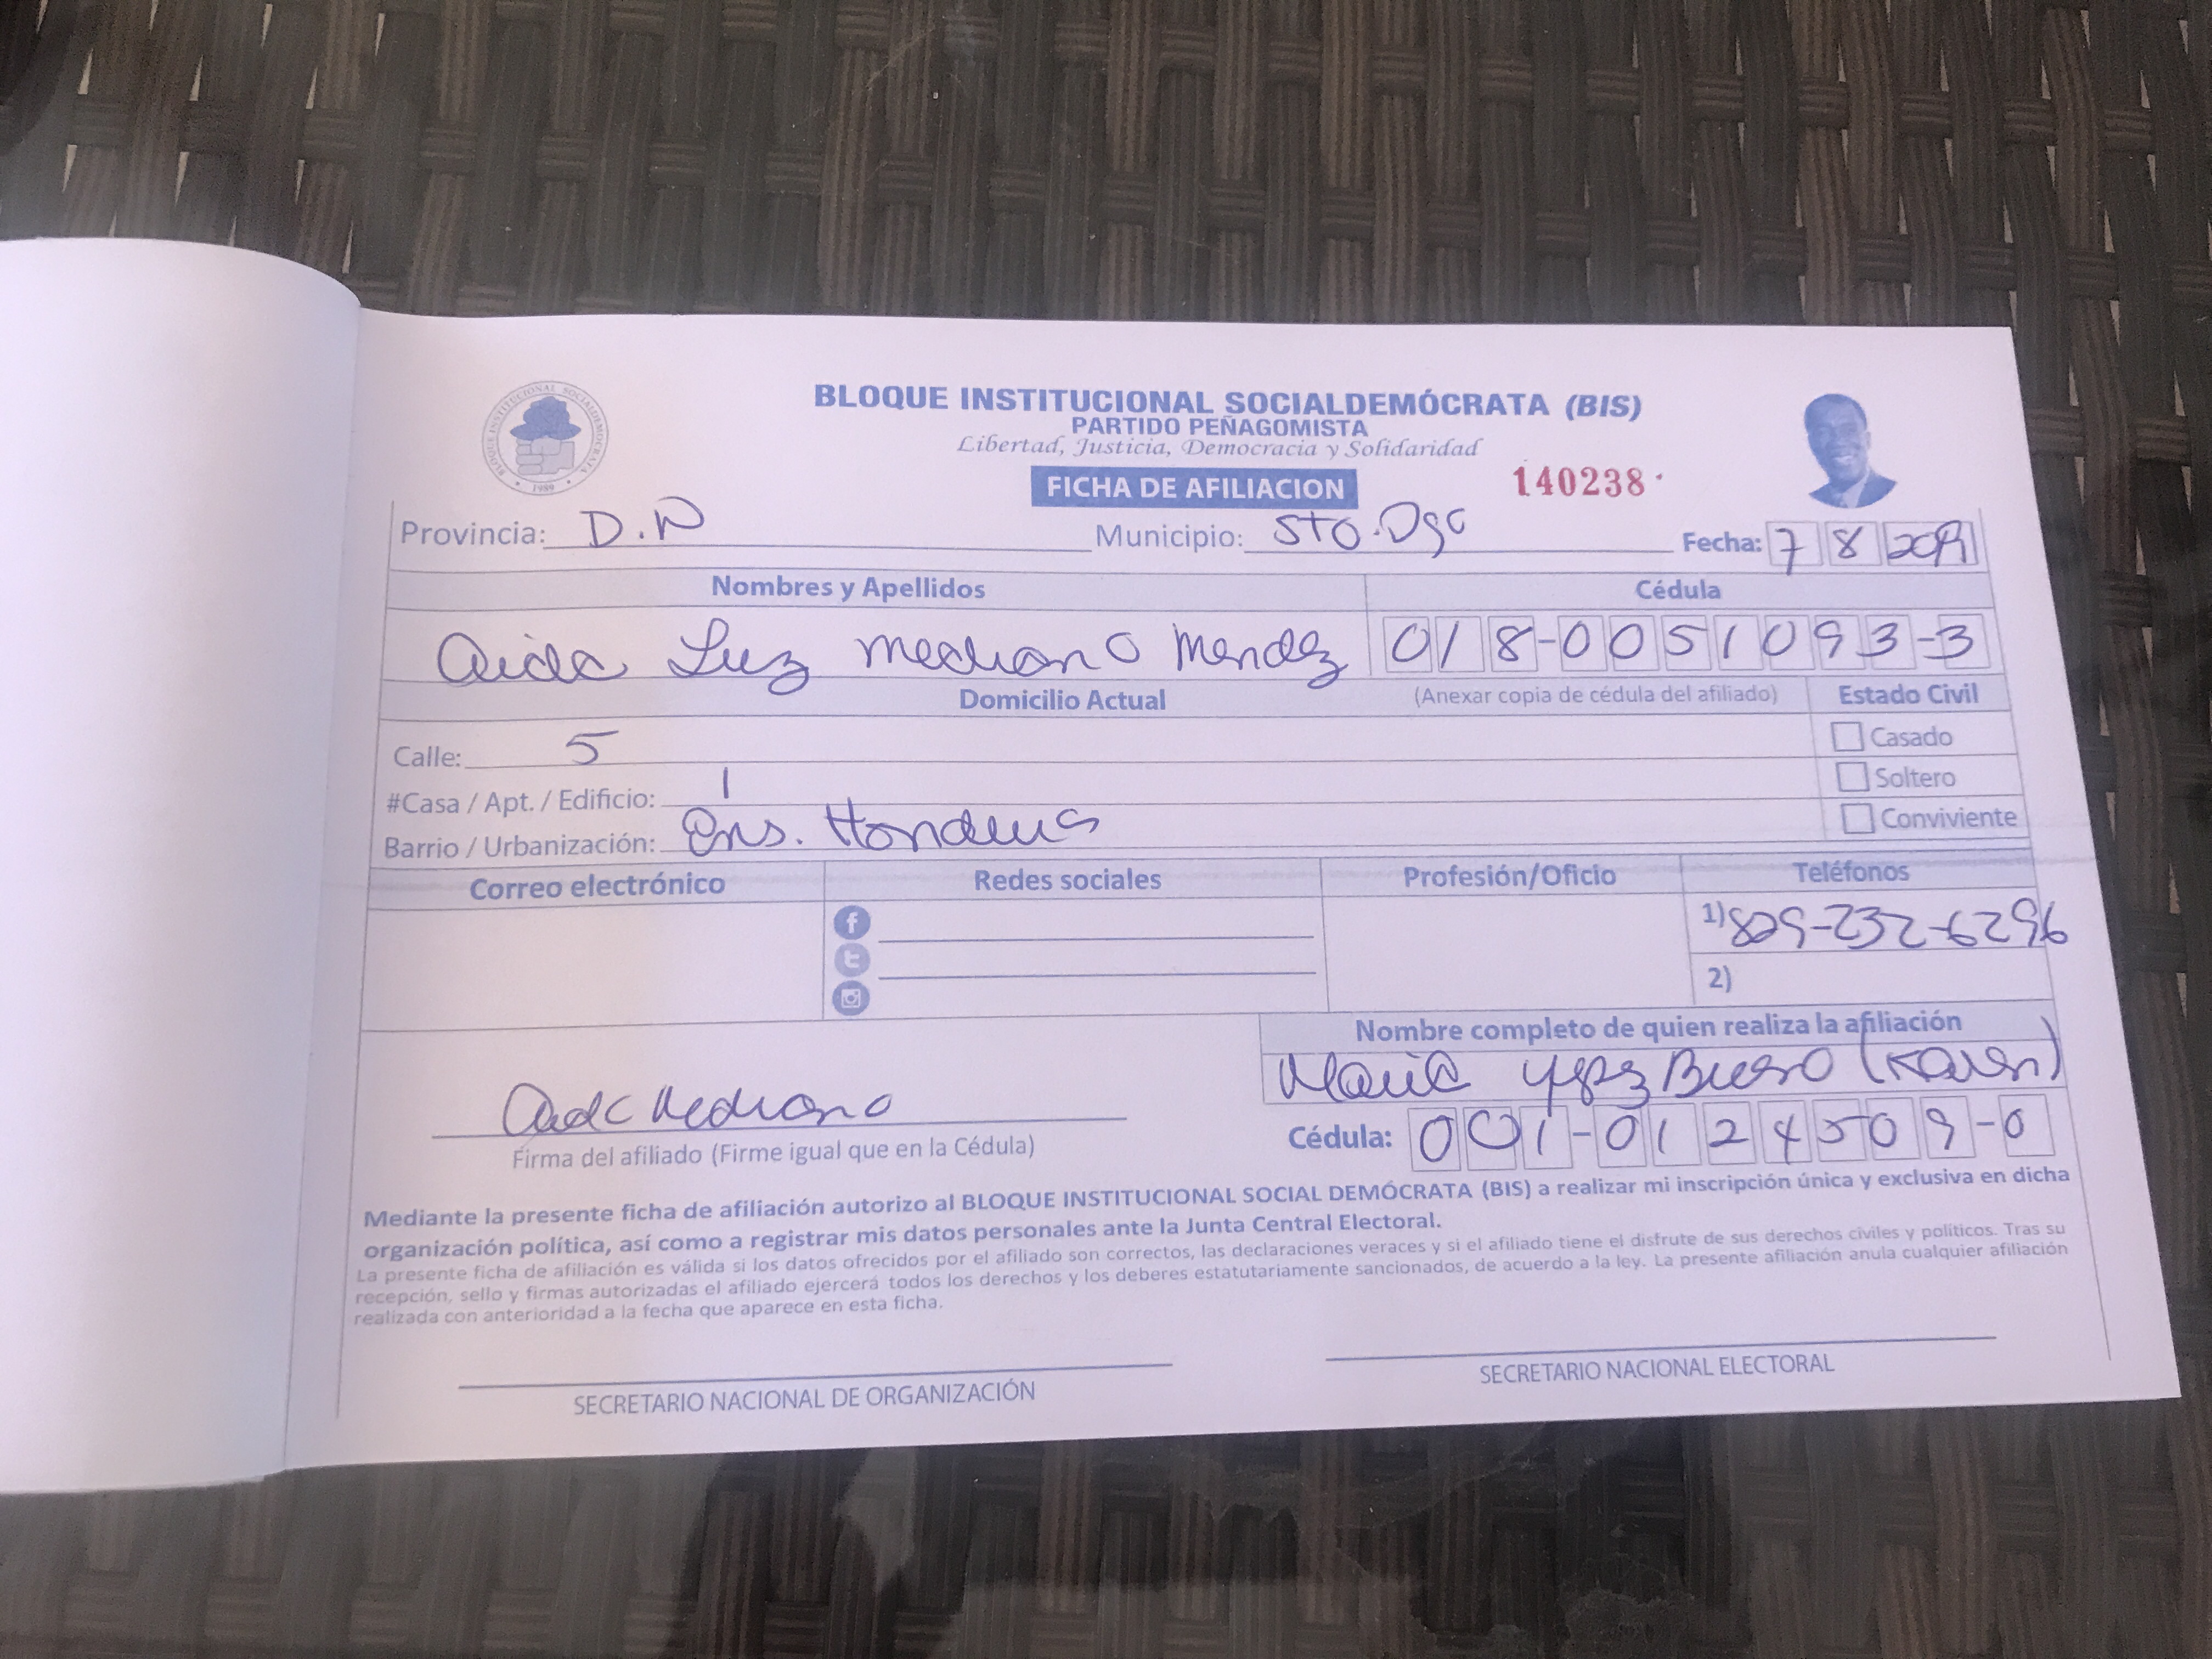 BLOQUE INSTITUCIONAL SOCIALDEMÓCRATA (BIS)
PARTIDO PEÑAGOMISTA
Libertad, Justicia, Democracia y Solidaridad
BLOQUE INSTITUCIONAL SOCIALDEMOCRATA
1989
FICHA DE AFILIACION
140238
Provincia: D.N Municipio: STO. Dgo Fecha: 7 8 2019
Nombres y Apellidos Cédula
Aida Luz Medrano Mendez 018-0051093-3
Domicilio Actual (Anexar copia de cédula del afiliado) Estado Civil
Calle: 5 Casado
#Casa / Apt. / Edificio: 1 Soltero
Barrio / Urbanización: Ens. Honduras Conviviente
Correo electrónico Redes sociales Profesión/Oficio Teléfonos
1) 829-232-6296
2)
Nombre completo de quien realiza la afiliación
Maria Bueno (Karen)
Aida Medrano
Firma del afiliado (Firme igual que en la Cédula)
Cédula: 001-0124509-0
Mediante la presente ficha de afiliación autorizo al BLOQUE INSTITUCIONAL SOCIAL DEMÓCRATA (BIS) a realizar mi inscripción única y exclusiva en dicha
organización política, así como a registrar mis datos personales ante la Junta Central Electoral.
La presente ficha de afiliación es válida si los datos ofrecidos por el afiliado son correctos, las declaraciones veraces y si el afiliado tiene el disfrute de sus derechos civiles y políticos. Tras su
recepción, sello y firmas autorizadas el afiliado ejercerá todos los derechos y los deberes estatutariamente sancionados, de acuerdo a la ley. La presente afiliación anula cualquier afiliación
realizada con anterioridad a la fecha que aparece en esta ficha.
SECRETARIO NACIONAL DE ORGANIZACIÓN SECRETARIO NACIONAL ELECTORAL